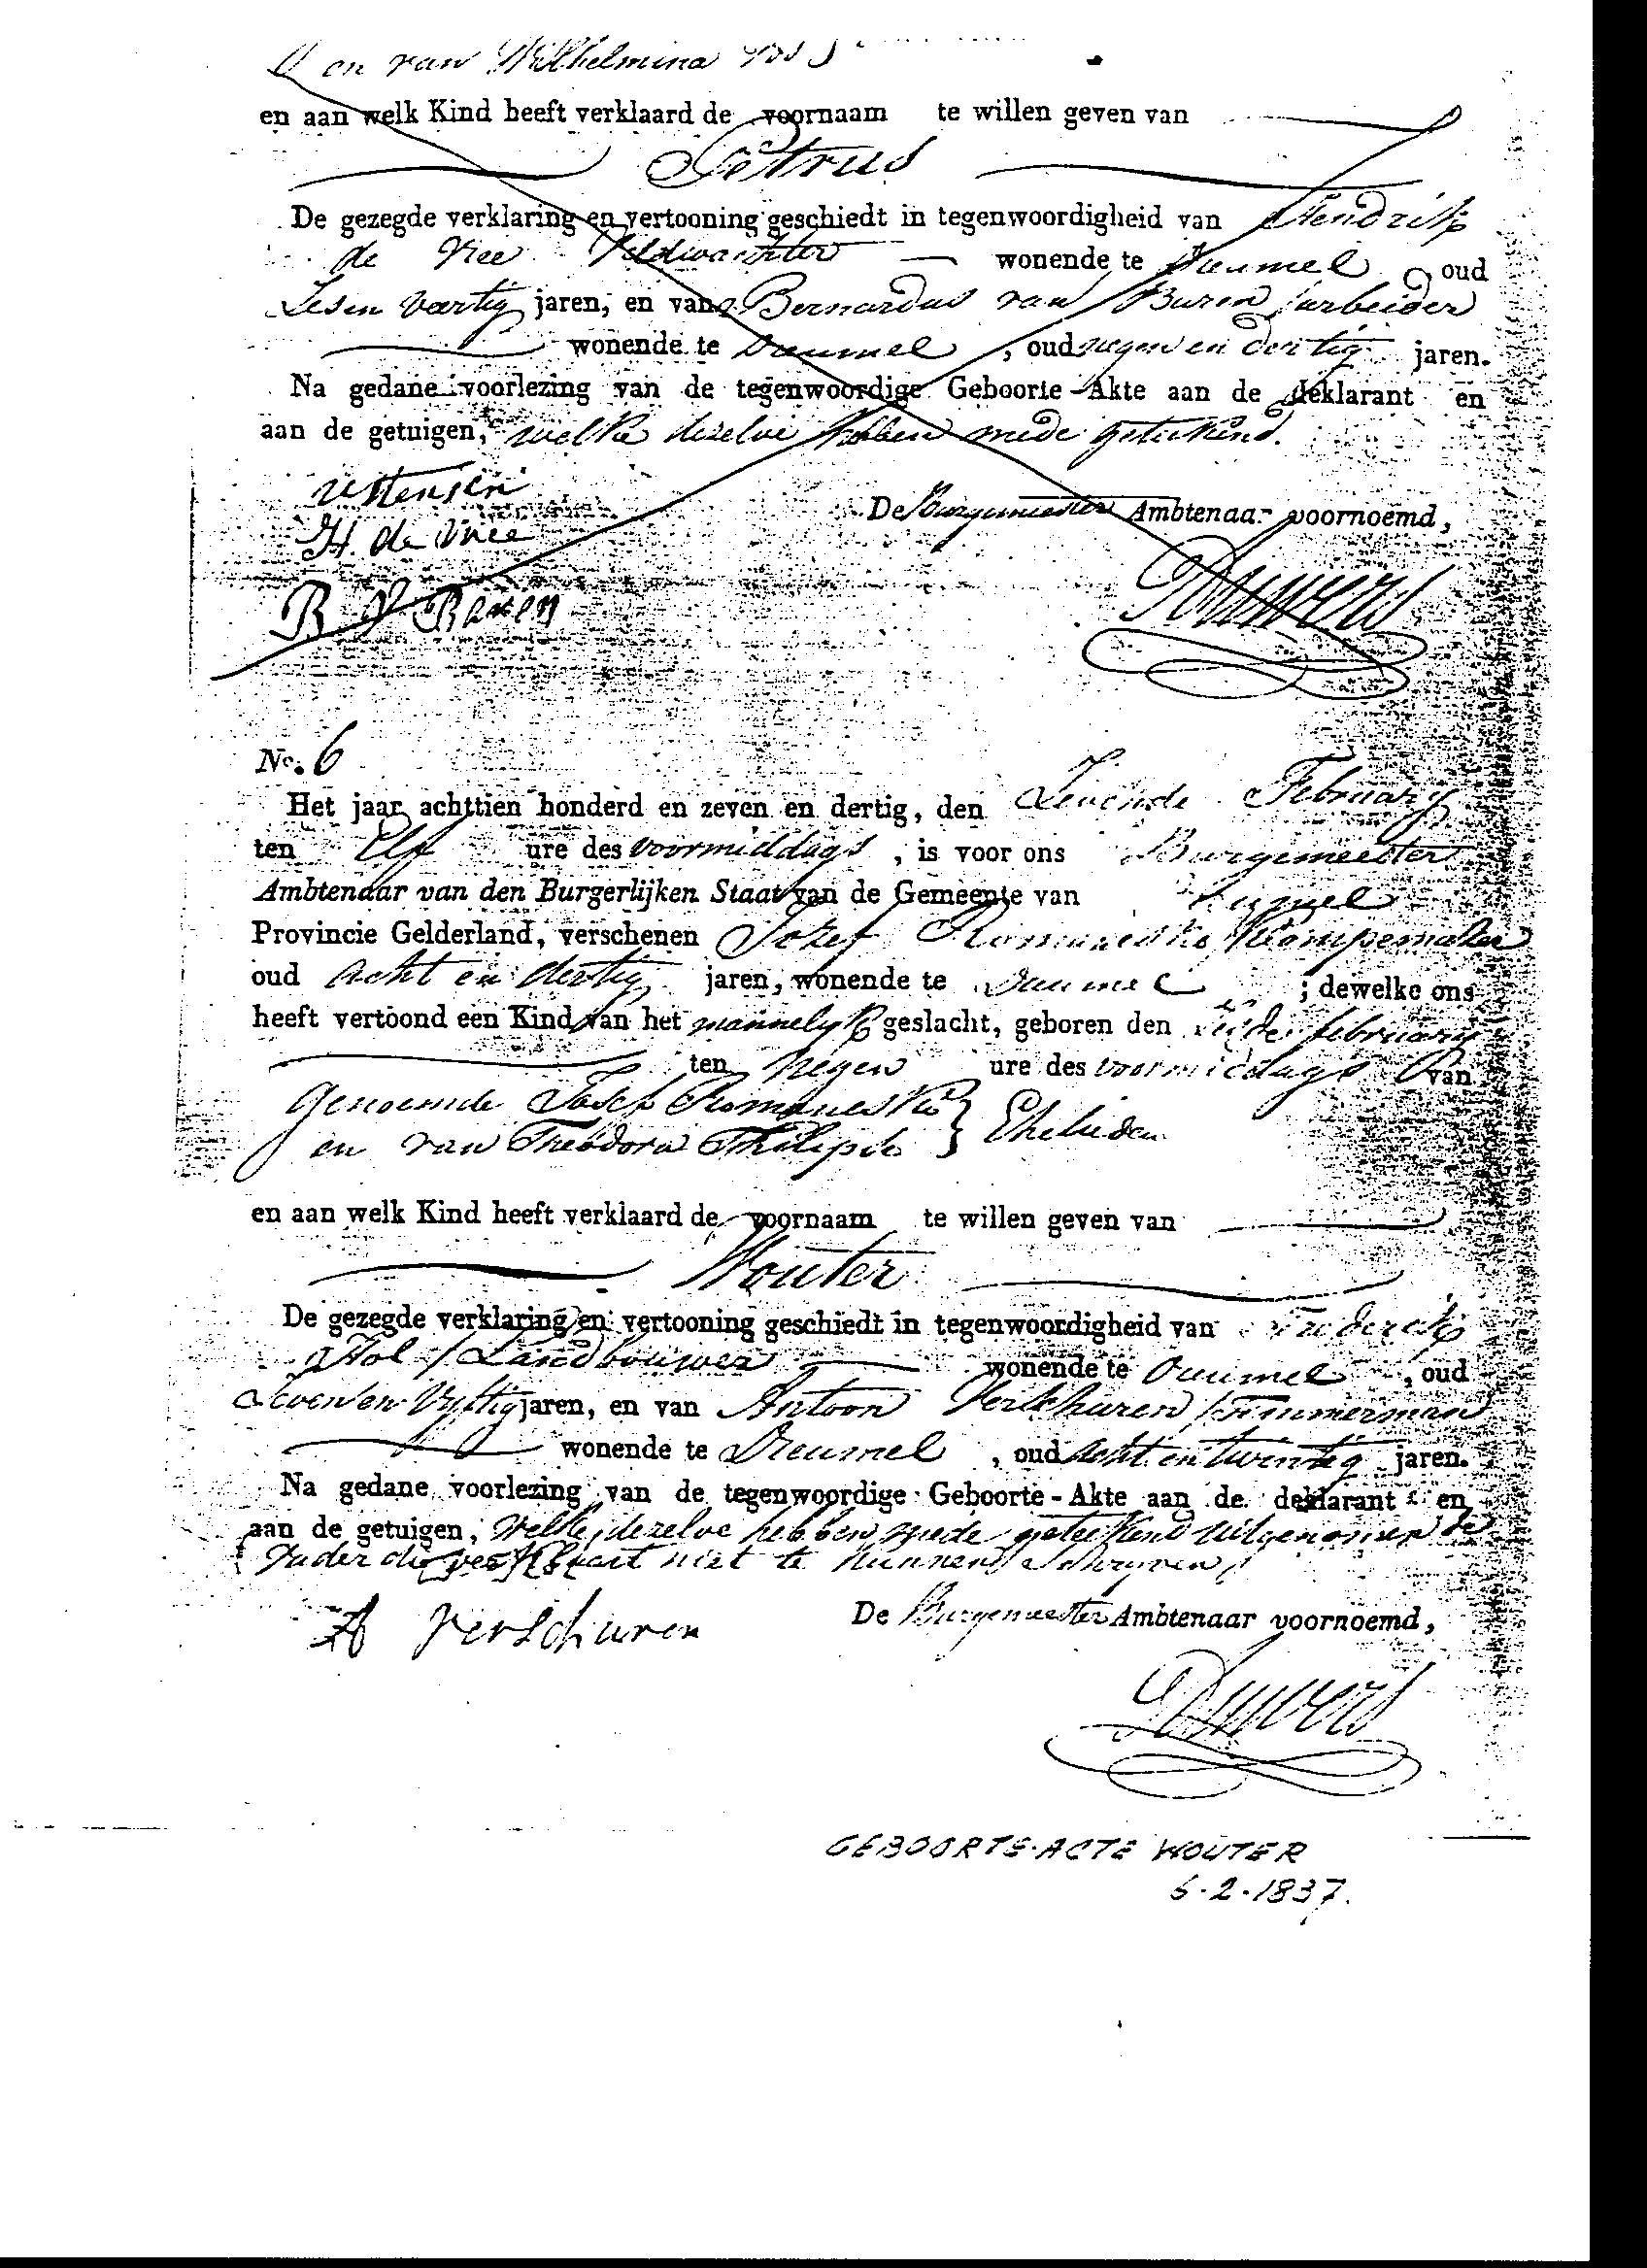 en van Wilhelmina
en aan welk Kind heeft verklaard de voornaam te willen geven van
Petrus
De gezegde verklaring en vertooning geschiedt in tegenwoordigheid van Hendrik
de Vree Veldwachter wonende te Dreumel oud
Zes en Veertig jaren, en van Bernardus van Buren arbeider
wonende te Dreumel, oud negen en dertig jaren.
Na gedane voorlezing van de tegenwoordige Geboorte-Akte aan de deklarant en
aan de getuigen, welke dezelve hebben mede geteekend.
H. de Vree
De Burgemeester Ambtenaar voornoemd,
B V Buren
No. 6
Het jaar achttien honderd en zeven en dertig, den Zevende February
ten Elf ure des voormiddags, is voor ons Burgemeester
Ambtenaar van den Burgerlijken Staat van de Gemeente van Dreumel
Provincie Gelderland, verschenen Jozef Romaneske
oud Acht en dertig jaren, wonende te Dreumel; dewelke ons
heeft vertoond een Kind van het mannelyk geslacht, geboren den february
ten Negen ure des voormiddags van
Genoemde Josep Romaneske } Ehelieden
en van Theodora Philipse
en aan welk Kind heeft verklaard de voornaam te willen geven van
Wouter
De gezegde verklaring en vertooning geschiedt in tegenwoordigheid van Frederik
Hol / Landbouwer wonende te Dreumel, oud
Zeven en Vyftig jaren, en van Antoon Verschuren / Timmerman
wonende te Dreumel, oud Acht en twintig jaren.
Na gedane voorlezing van de tegenwoordige Geboorte-Akte aan de deklarant en
aan de getuigen, Welke dezelve hebben mede geteekend uitgenomen de
Vader die verklaart niet te kunnen Schryven
De Burgemeester Ambtenaar voornoemd,
A Verschuren
GEBOORTE-ACTE WOUTER
6-2-1837.